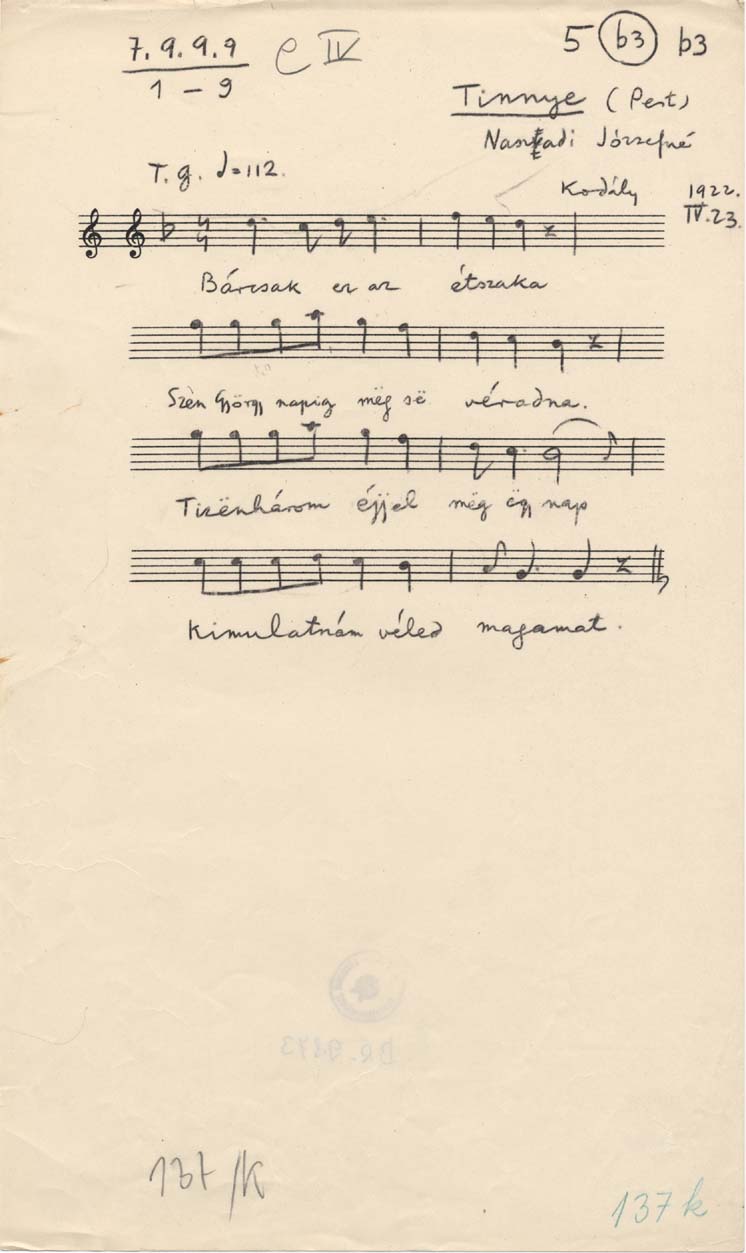 7. 9. 9. 9 C IV
1 – 9
5 b3 b3
Tinnye (Pest)
Józsefné
T. g. = 112.
Kodály 1922. IV. 23.
Bárcsak ez az étszaka
Szën György napig még së véradna.
Tizënhárom éjjel még ëgy nap
Kimulatnám véled magamat.
137/k
137 k